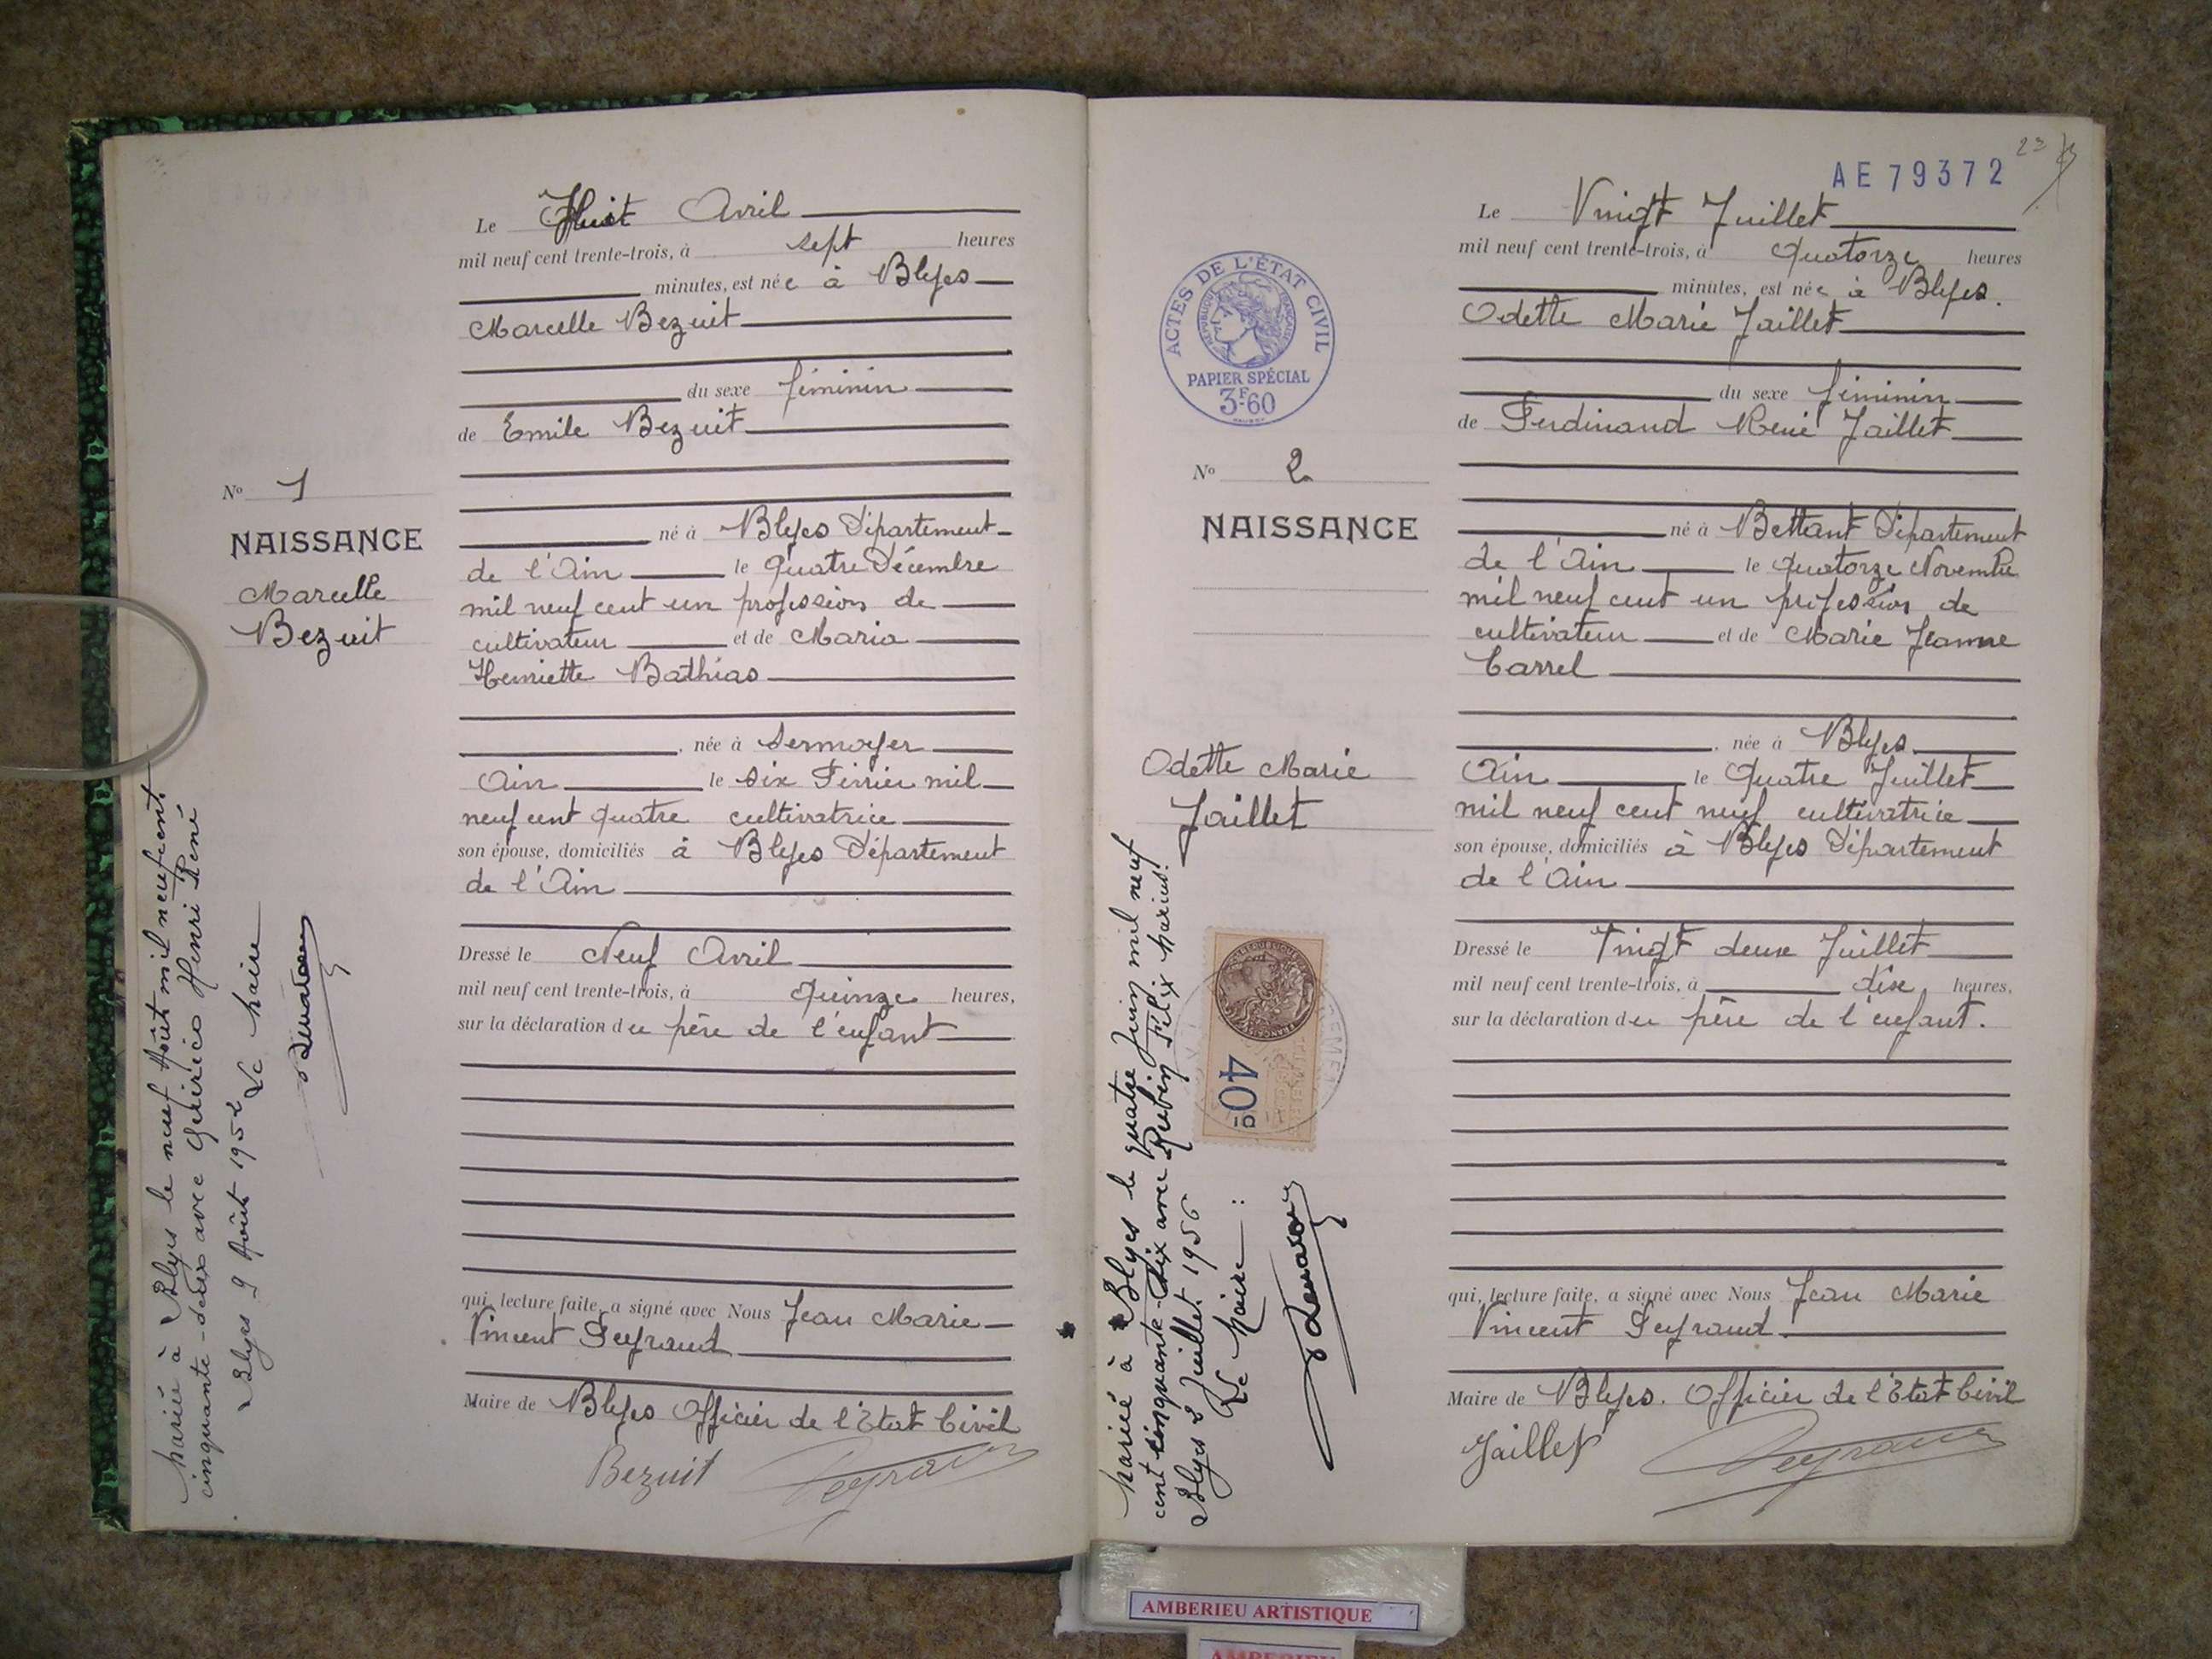 Le Huit Avril
mil neuf cent trente-trois, à sept heures
minutes, est née à Blyes
Marcelle Bezuit
du sexe féminin
de Emile Bezuit
né à Blyes Département
de l'Ain le Quatre Décembre
mil neuf cent un profession de
cultivateur et de Maria
Henriette Bathias
née à Sermoyer
Ain le six Février mil
neuf cent quatre cultivatrice
son épouse, domiciliés à Blyes Département
de l'Ain
Dressé le Neuf Avril
mil neuf cent trente-trois, à Quinze heures,
sur la déclaration du père de l'enfant
qui, lecture faite, a signé avec Nous Jean Marie
Vincent Peyraud
Maire de Blyes Officier de l'Etat Civil
Bezuit Peyraud
No 1
NAISSANCE
Marcelle
Bezuit
Mariée à Blyes le neuf Août mil neuf cent
cinquante-deux avec Quirico Henri René
Blyes 9 Août 1952 Le Maire
AE79372
23
ACTES DE L'ÉTAT CIVIL
RÉPUBLIQUE FRANÇAISE
PAPIER SPÉCIAL
3F.60
No 2
NAISSANCE
Odette Marie
Jaillet
40c
Mariée à Blyes le quatre Juin mil neuf
cent cinquante-six avec Rubin Félix Marius.
Blyes 2 Juillet 1956
Le Maire :
Le Vingt Juillet
mil neuf cent trente-trois, à Quatorze heures
minutes, est née à Blyes.
Odette Marie Jaillet
du sexe féminin
de Ferdinand René Jaillet
né à Bettant Département
de l'Ain le Quatorze Novembre
mil neuf cent un profession de
cultivateur et de Marie Jeanne
Carrel
née à Blyes
Ain le Quatre Juillet
mil neuf cent neuf cultivatrice
son épouse, domiciliés à Blyes Département
de l'Ain
Dressé le Vingt deux Juillet
mil neuf cent trente-trois, à dix heures,
sur la déclaration du père de l'enfant.
qui, lecture faite, a signé avec Nous Jean Marie
Vincent Peyraud.
Maire de Blyes. Officier de l'Etat Civil
Jaillet Peyraud
AMBERIEU ARTISTIQUE
AMBERIEU